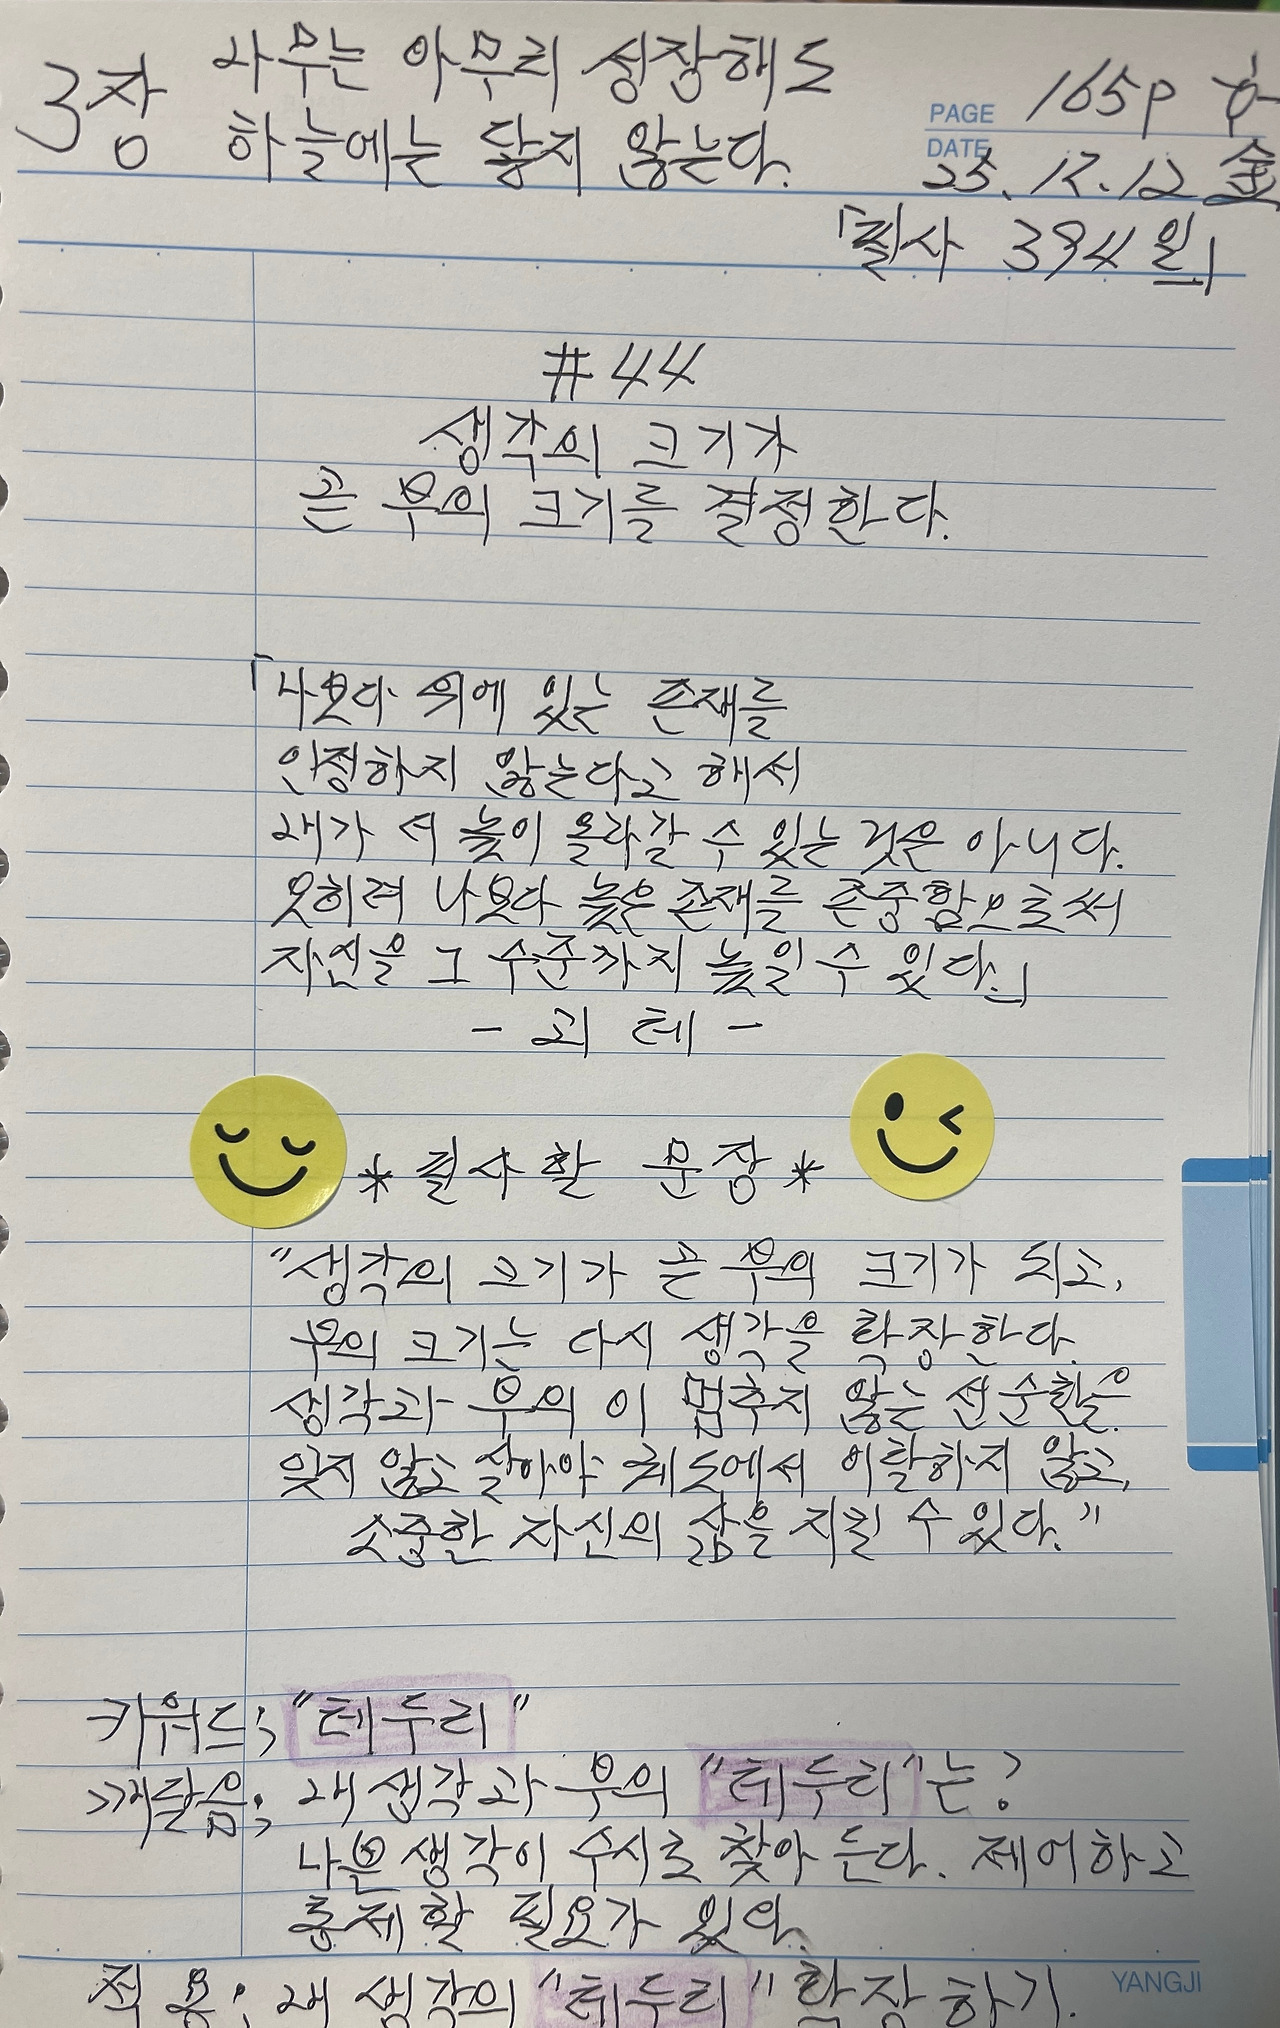 3장 나무는 아무리 성장해도
하늘에는 닿지 않는다.
PAGE 165p
DATE 25. 12. 12 金
「필사 394일」
#44
생각의 크기가
곧 부의 크기를 결정한다.
「나보다 위에 있는 존재를
인정하지 않는다고 해서
내가 더 높이 올라갈 수 있는 것은 아니다.
오히려 나보다 높은 존재를 존중함으로써
자신을 그 수준까지 높일 수 있다.」
- 괴테 -
* 필사할 문장 *
"생각의 크기가 곧 부의 크기가 되고,
부의 크기는 다시 생각을 확장한다.
생각과 부의 이 멈추지 않는 선순환을
잊지 않고 살아야 궤도에서 이탈하지 않고,
소중한 자신의 삶을 지킬 수 있다."
키워드; "테두리"
깨달음; 내 생각과 부의 "테두리"는?
나쁜 생각이 수시로 찾아 든다. 제어하고
통제할 필요가 있다.
적용: 내 생각의 "테두리" 확장하기.
YANGJI